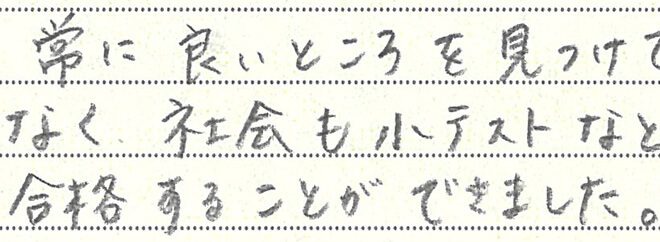 常に良いところを見つけて
なく社会も小テストなど
合格することができました。